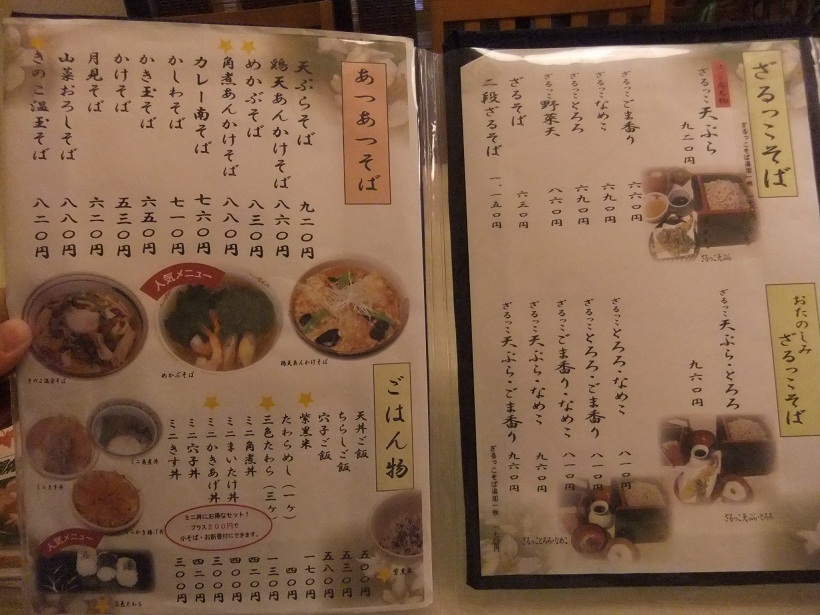 ざるっこそば
ざるっこ天ぷら 九二〇円
ざるっこごま香り 六六〇円
ざるっこなめこ 六九〇円
ざるっことろろ 六九〇円
ざるっこ野菜天 八六〇円
ざるそば 六三〇円
二段ざるそば 一、一五〇円
ざるっこ天ぷら
おたのしみ
ざるっこそば
ざるっこ天ぷら・とろろ 九六〇円
ざるっことろろ・なめこ 八一〇円
ざるっことろろ・ごま香り 八一〇円
ざるっこごま香り・なめこ 八一〇円
ざるっこ天ぷら・なめこ 九六〇円
ざるっこ天ぷら・ごま香り 九六〇円
ざるっこ天ぷら・とろろ
ざるっことろろ・なめこ
あつあつそば
天ぷらそば 九二〇円
鶏天あんかけそば 八六〇円
めかぶそば 八三〇円
角煮あんかけそば 八八〇円
カレー南そば 七六〇円
かしわそば 七一〇円
かき玉そば 六五〇円
かけそば 五三〇円
月見そば 六二〇円
山菜おろしそば 八八〇円
きのこ温玉そば 八二〇円
人気メニュー
鶏天あんかけそば
めかぶそば
きのこ温玉そば
ごはん物
天丼ご飯 五〇〇円
ちらしご飯 五三〇円
穴子ご飯 五八〇円
紫黒米 一七〇円
たわらめし(一ヶ) 四〇円
三色たわら(三ヶ) 一三〇円
ミニ角煮丼 四二〇円
ミニまいたけ丼 四〇〇円
ミニかきあげ丼 三〇〇円
ミニ穴子丼 四二〇円
ミニきす丼 三〇〇円
ミニ丼にお得なセット!
プラス200円で
小そば・お新香付にできます。
ミニ角煮丼
ミニきす丼
人気メニュー
三色たわら
紫黒米